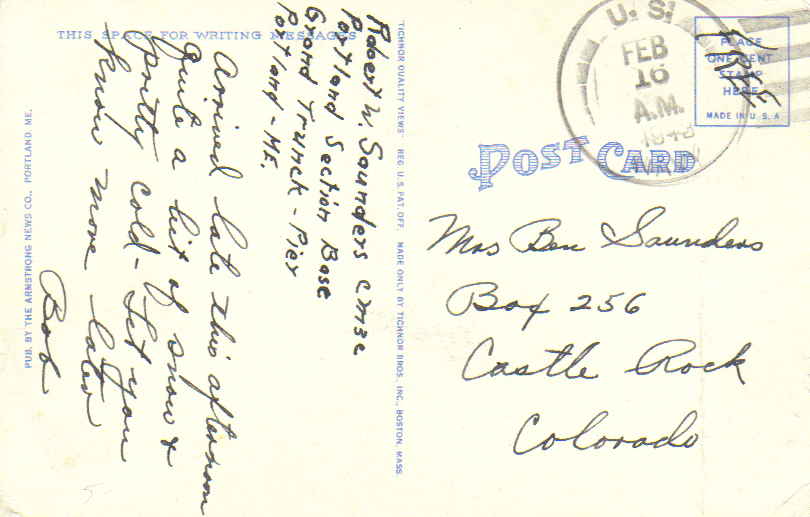 THIS SPACE FOR WRITING MESSAGES
Robert W. Saunders CM3c
Portland Section Base
Grand Trunck - Pier
Portland - ME.
Arrived late this afternoon
quite a bit of snow &
pretty cold - Let you
know more later
Bob
PUB. BY THE ARMSTRONG NEWS CO., PORTLAND, ME.
"TICHNOR QUALITY VIEWS" REG. U. S. PAT. OFF. MADE ONLY BY TICHNOR BROS., INC., BOSTON, MASS.
U. S.
FEB
16
A.M.
NAVY
PLACE
ONE CENT
STAMP
HERE
MADE IN U. S. A.
FREE
POST CARD
Mrs Ben Saunders
Box 256
Castle Rock
Colorado